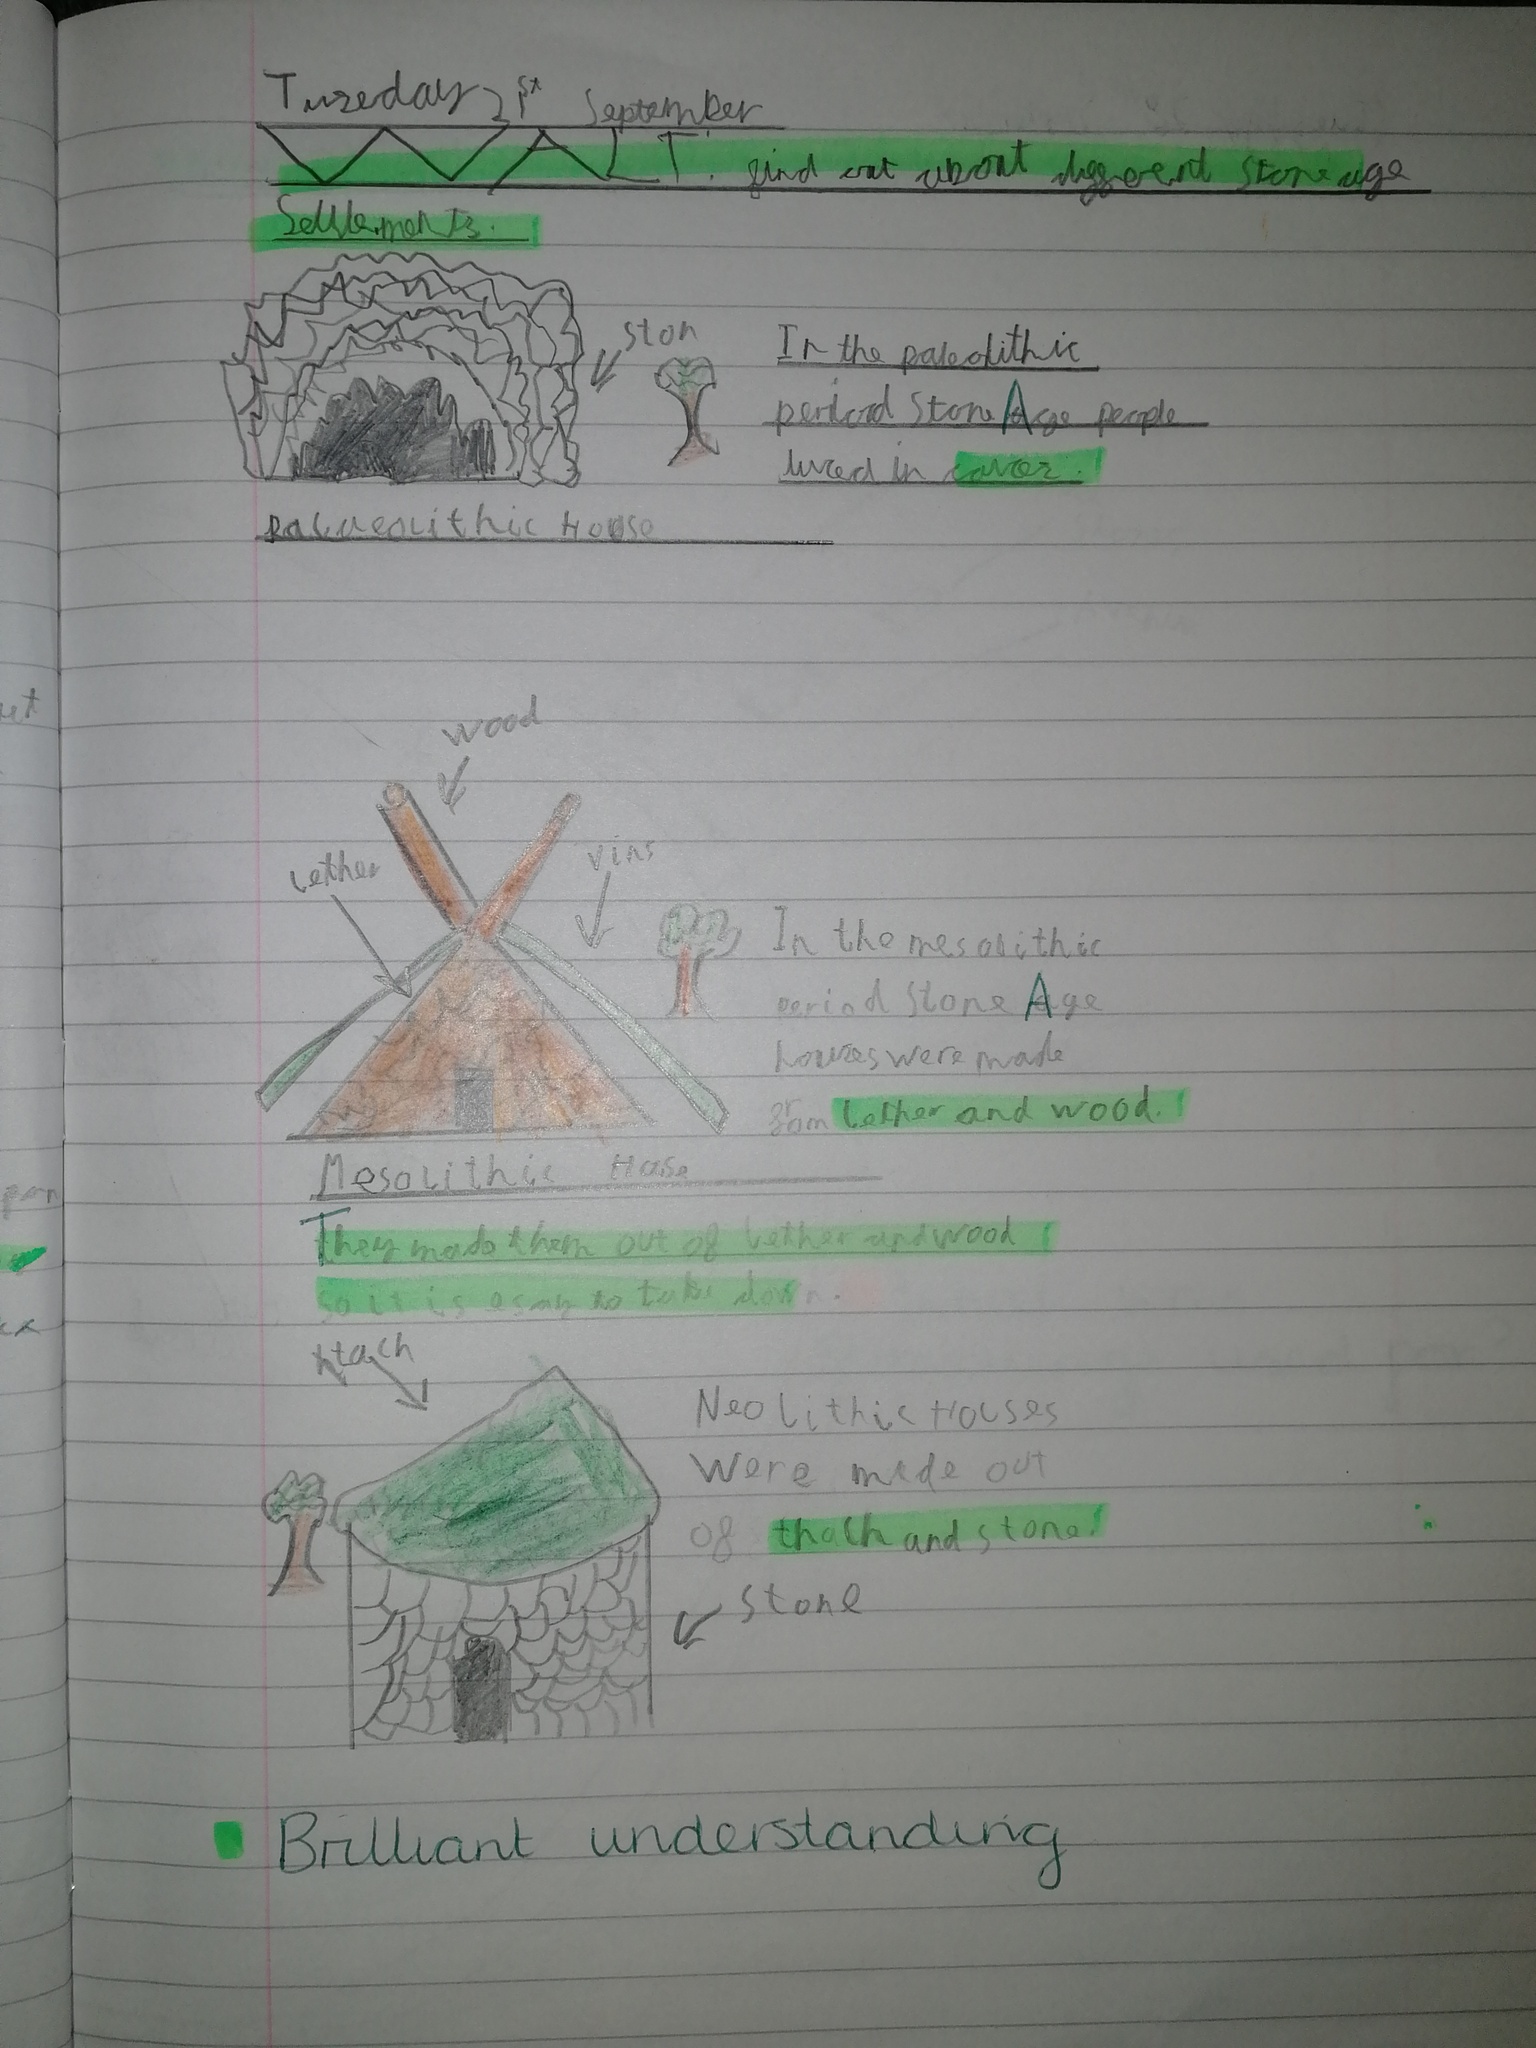 Tuseday 21st September
WALT: find out about different Stone age
Settlements.
ston
In the paleolithic
period Stone Age people
lived in caves.
Palaeolithic House
wood
lether
vins
In the mesolithic
period Stone Age
houses were made
from lether and wood.
Mesolithic House
They made them out of lether and wood
so it is easy to take down.
htach
Neolithic Houses
were made out
of thach and stone.
stone
Brilliant understanding